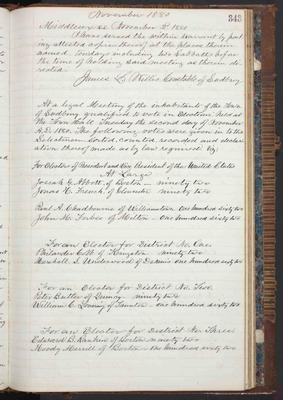 November 1880
343
Middlesex ss November 2d 1880
I have served the within Warrant by post
ing attested copies thereof at the places therein
named Sundays including two Sabbaths before
the time of holding said meeting as therein di-
rected
James L. Willis Constable of Sudbury
At a legal Meeting of the inhabitants of the Town
of Sudbury, qualified to vote in Elections held at
the Town Hall Tuesday the second day of November
A.D. 1880. The following votes were given in to the
Selectmen sorted, counted, recorded and declar
ation thereof made as by law required. viz
For Elector of President and Vice President of the United States
At Large
Josiah G. Abbott of Boston — ninety two
Jonas H. French of Gloucester ninety two
Paul A. Chadbourne of Williamstown one hundred sixty two
John M. Forbes of Milton — One hundred sixty two
For an Elector for District No. One
Philander Cobb of Kingston ninety two
Marshall S. Underwood of Dennis one hundred sixty two
For an Elector for District No. Two
Peter Butler of Quincy ninety two
William C. Lovering of Taunton one hundred sixty two
For an Elector for District No. Three
Edward B. Rankin of Boston ninety two
Moody Merrill of Boston one hundred sixty two